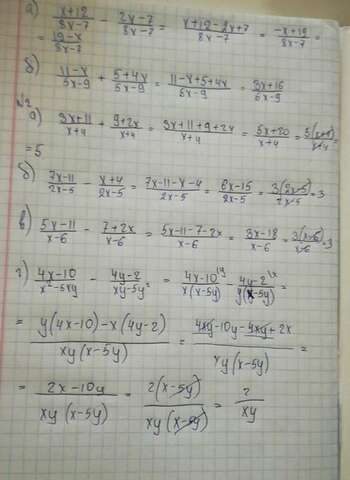 а) (x+12)/(8x-7) - (2x-7)/(8x-7) = (x+12-2x+7)/(8x-7) = (-x+19)/(8x-7) =
= (19-x)/(8x-7)
б) (11-x)/(5x-9) + (5+4x)/(5x-9) = (11-x+5+4x)/(5x-9) = (3x+16)/(5x-9)
№2
а) (3x+11)/(x+4) + (9+2x)/(x+4) = (3x+11+9+2x)/(x+4) = (5x+20)/(x+4) = 5(x+4)/(x+4) =
= 5
б) (7x-11)/(2x-5) - (x+4)/(2x-5) = (7x-11-x-4)/(2x-5) = (6x-15)/(2x-5) = 3(2x-5)/(2x-5) = 3
в) (5x-11)/(x-6) - (7+2x)/(x-6) = (5x-11-7-2x)/(x-6) = (3x-18)/(x-6) = 3(x-6)/(x-6) = 3
г) (4x-10)/(x²-5xy) - (4y-2)/(xy-5y²) = (4x-10)/(x(x-5y)) - (4y-2)/(y(x-5y)) =
= (y(4x-10)-x(4y-2))/(xy(x-5y)) = (4xy-10y-4xy+2x)/(xy(x-5y)) =
= (2x-10y)/(xy(x-5y)) = 2(x-5y)/(xy(x-5y)) = 2/(xy)